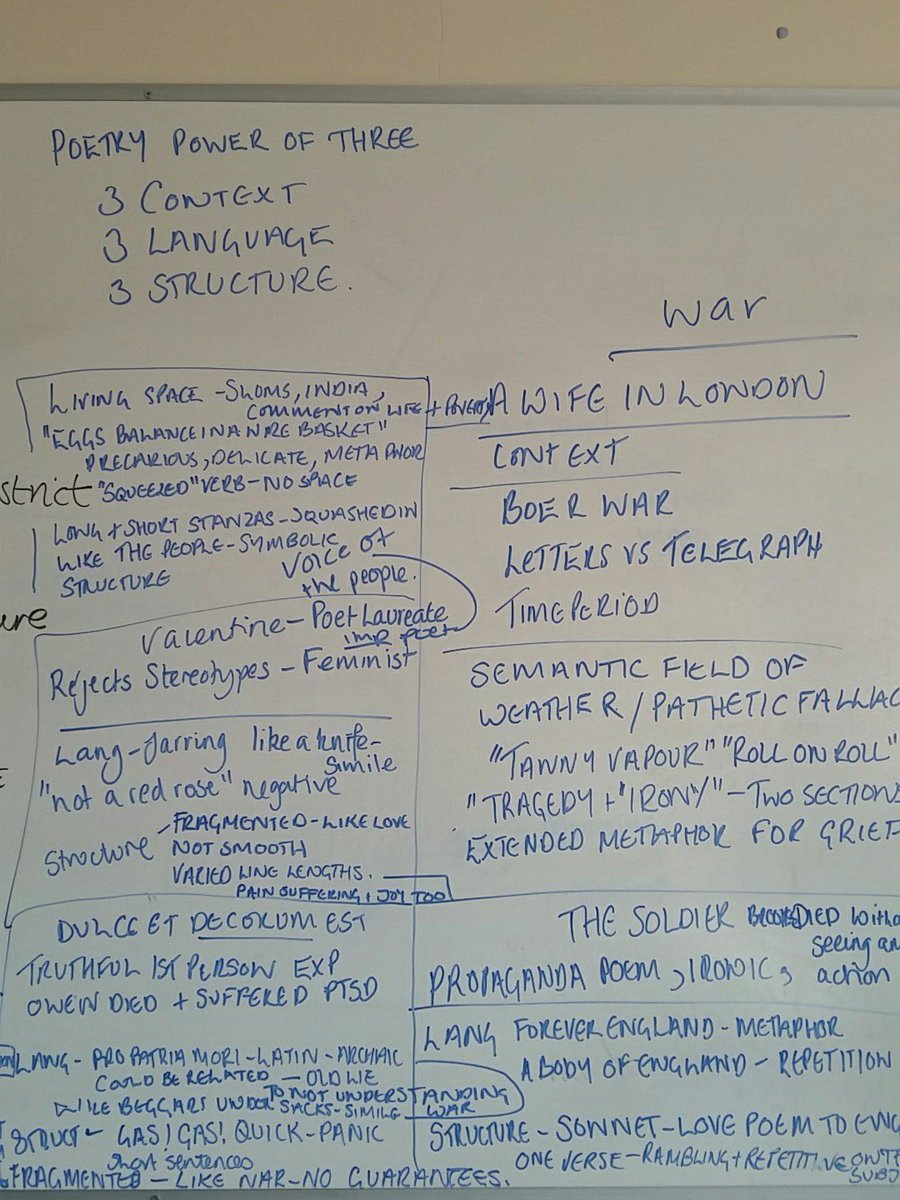 POETRY POWER OF THREE
3 CONTEXT
3 LANGUAGE
3 STRUCTURE.
LIVING SPACE - SLUMS, INDIA,
COMMENT ON LIFE + POVERTY
"EGGS BALANCE IN A WIRE BASKET"
PRECARIOUS, DELICATE, METAPHOR
strict
"SQUEEZED" VERB - NO SPACE
LONG + SHORT STANZAS - SQUASHED IN
LIKE THE PEOPLE - SYMBOLIC
STRUCTURE
Voice of
the people.
ure
Valentine - Poet Laureate
Rejects Stereotypes - Feminist
Lang - Jarring like a knife -
simile
"not a red rose" negative
Structure
FRAGMENTED - LIKE LOVE
NOT SMOOTH
VARIED LINE LENGTHS.
PAIN SUFFERING + JOY TOO
DULCE ET DECORUM EST
TRUTHFUL 1ST PERSON EXP
OWEN DIED + SUFFERED PTSD
LANG - PRO PATRIA MORI - LATIN - ARCHAIC
COULD BE RELATED - OLD LIE
TO NOT UNDERSTANDING
WAR
LIKE BEGGARS UNDER SACKS - SIMILE
STRUCT - GAS! GAS! QUICK - PANIC
short sentences
FRAGMENTED - LIKE WAR - NO GUARANTEES.
war
A WIFE IN LONDON
CONTEXT
BOER WAR
LETTERS VS TELEGRAPH
TIME PERIOD
SEMANTIC FIELD OF
WEATHER / PATHETIC FALLAC
"TANNY VAPOUR" "ROLL ON ROLL"
"TRAGEDY + "IRONY" - TWO SECTIONS
EXTENDED METAPHOR FOR GRIEF
THE SOLDIER DIED witho
seeing an
action
PROPAGANDA POEM, IRONIC,
LANG FOREVER ENGLAND - METAPHOR
A BODY OF ENGLAND - REPETITION
STRUCTURE - SONNET - LOVE POEM TO ENG
ONE VERSE - RAMBLING + REPETITIVE ON THE
SUBJ